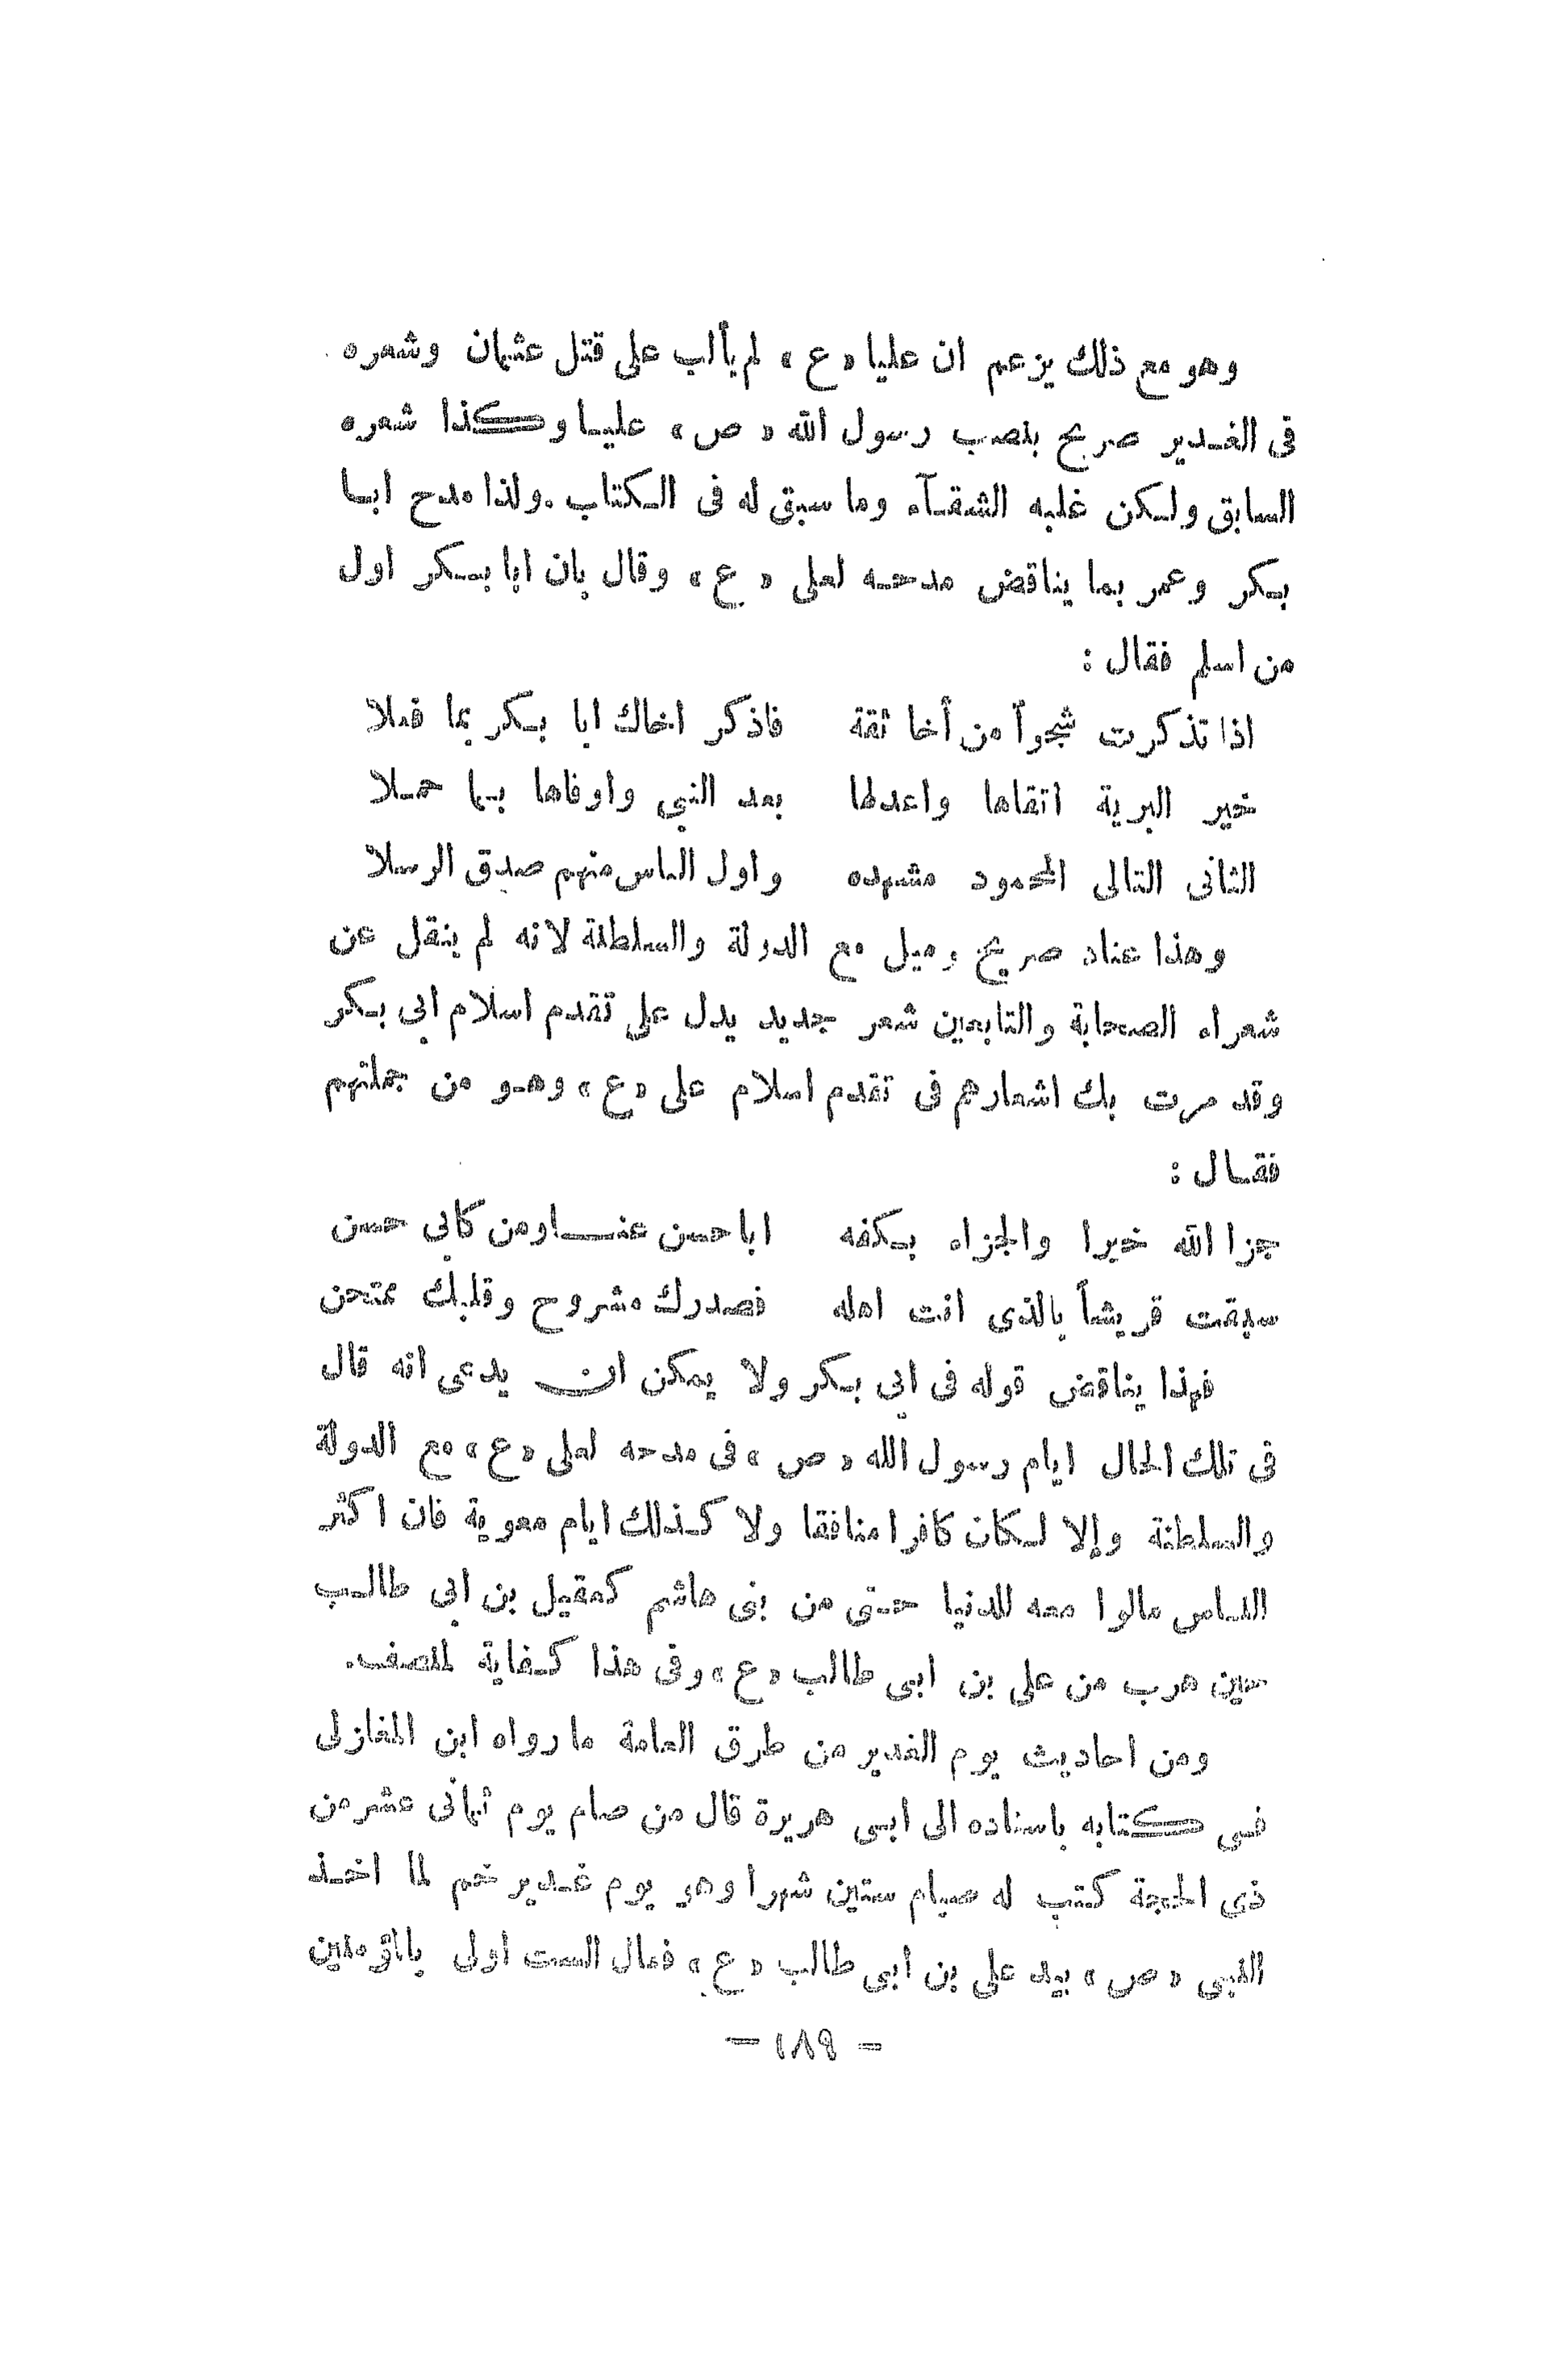 وهو مع ذلك يزعم ان عليا «ع» لم يألب على قتل عثمان وشعره
فى الغدير صريح بنصب رسول الله «ص» عليا وكذا شعره
السابق ولكن غلبه الشقآء وما سبق له فى الكتاب . ولذا مدح ابا
بكر وعمر بما يناقض مدحه لعلى «ع» وقال بان ابا بكر اول
من اسلم فقال :
اذا تذكرت شجواً من أخا ثقة فاذكر اخاك ابا بكر بما فعلا
خير البرية اتقاها واعدلها بعد النبي واوفاها بما حملا
الثانى التالى المحمود مشهده واول الناس منهم صدق الرسلا
وهذا عناد صريح وميل مع الدولة والسلطنة لانه لم ينقل عن
شعراء الصحابة والتابعين شعر جديد يدل على تقدم اسلام ابي بكر
وقد مرت بك اشعارهم فى تقدم اسلام على «ع» وهو من جملتهم
فقال :
جزا الله خيرا والجزاء بكفه ابا حسن عنا ومن كابي حسن
سبقت قريشاً بالذى انت اهله فصدرك مشروح وقلبك ممتحن
فهذا يناقض قوله فى ابي بكر ولا يمكن ان يدعى انه قال
فى تلك الحال ايام رسول الله «ص» فى مدحه لعلى «ع» مع الدولة
والسلطنة وإلا لكان كافرا منافقا ولا كذلك ايام معوية فان اكثر
الناس مالوا معه للدنيا حتى من بنى هاشم كعقيل بن ابى طالب
حين هرب من على بن ابى طالب «ع» وفى هذا كفاية لمنصف.
ومن احاديث يوم الغدير من طرق العامة ما رواه ابن المغازلى
فى كتابه باسناده الى ابى هريرة قال من صام يوم ثمانى عشر من
ذى الحجة كتب له صيام ستين شهرا وهو يوم غدير خم لما اخذ
النبى «ص» بيد على بن ابى طالب «ع» فقال الست اولى بالمؤمنين
- ١٨٩ -